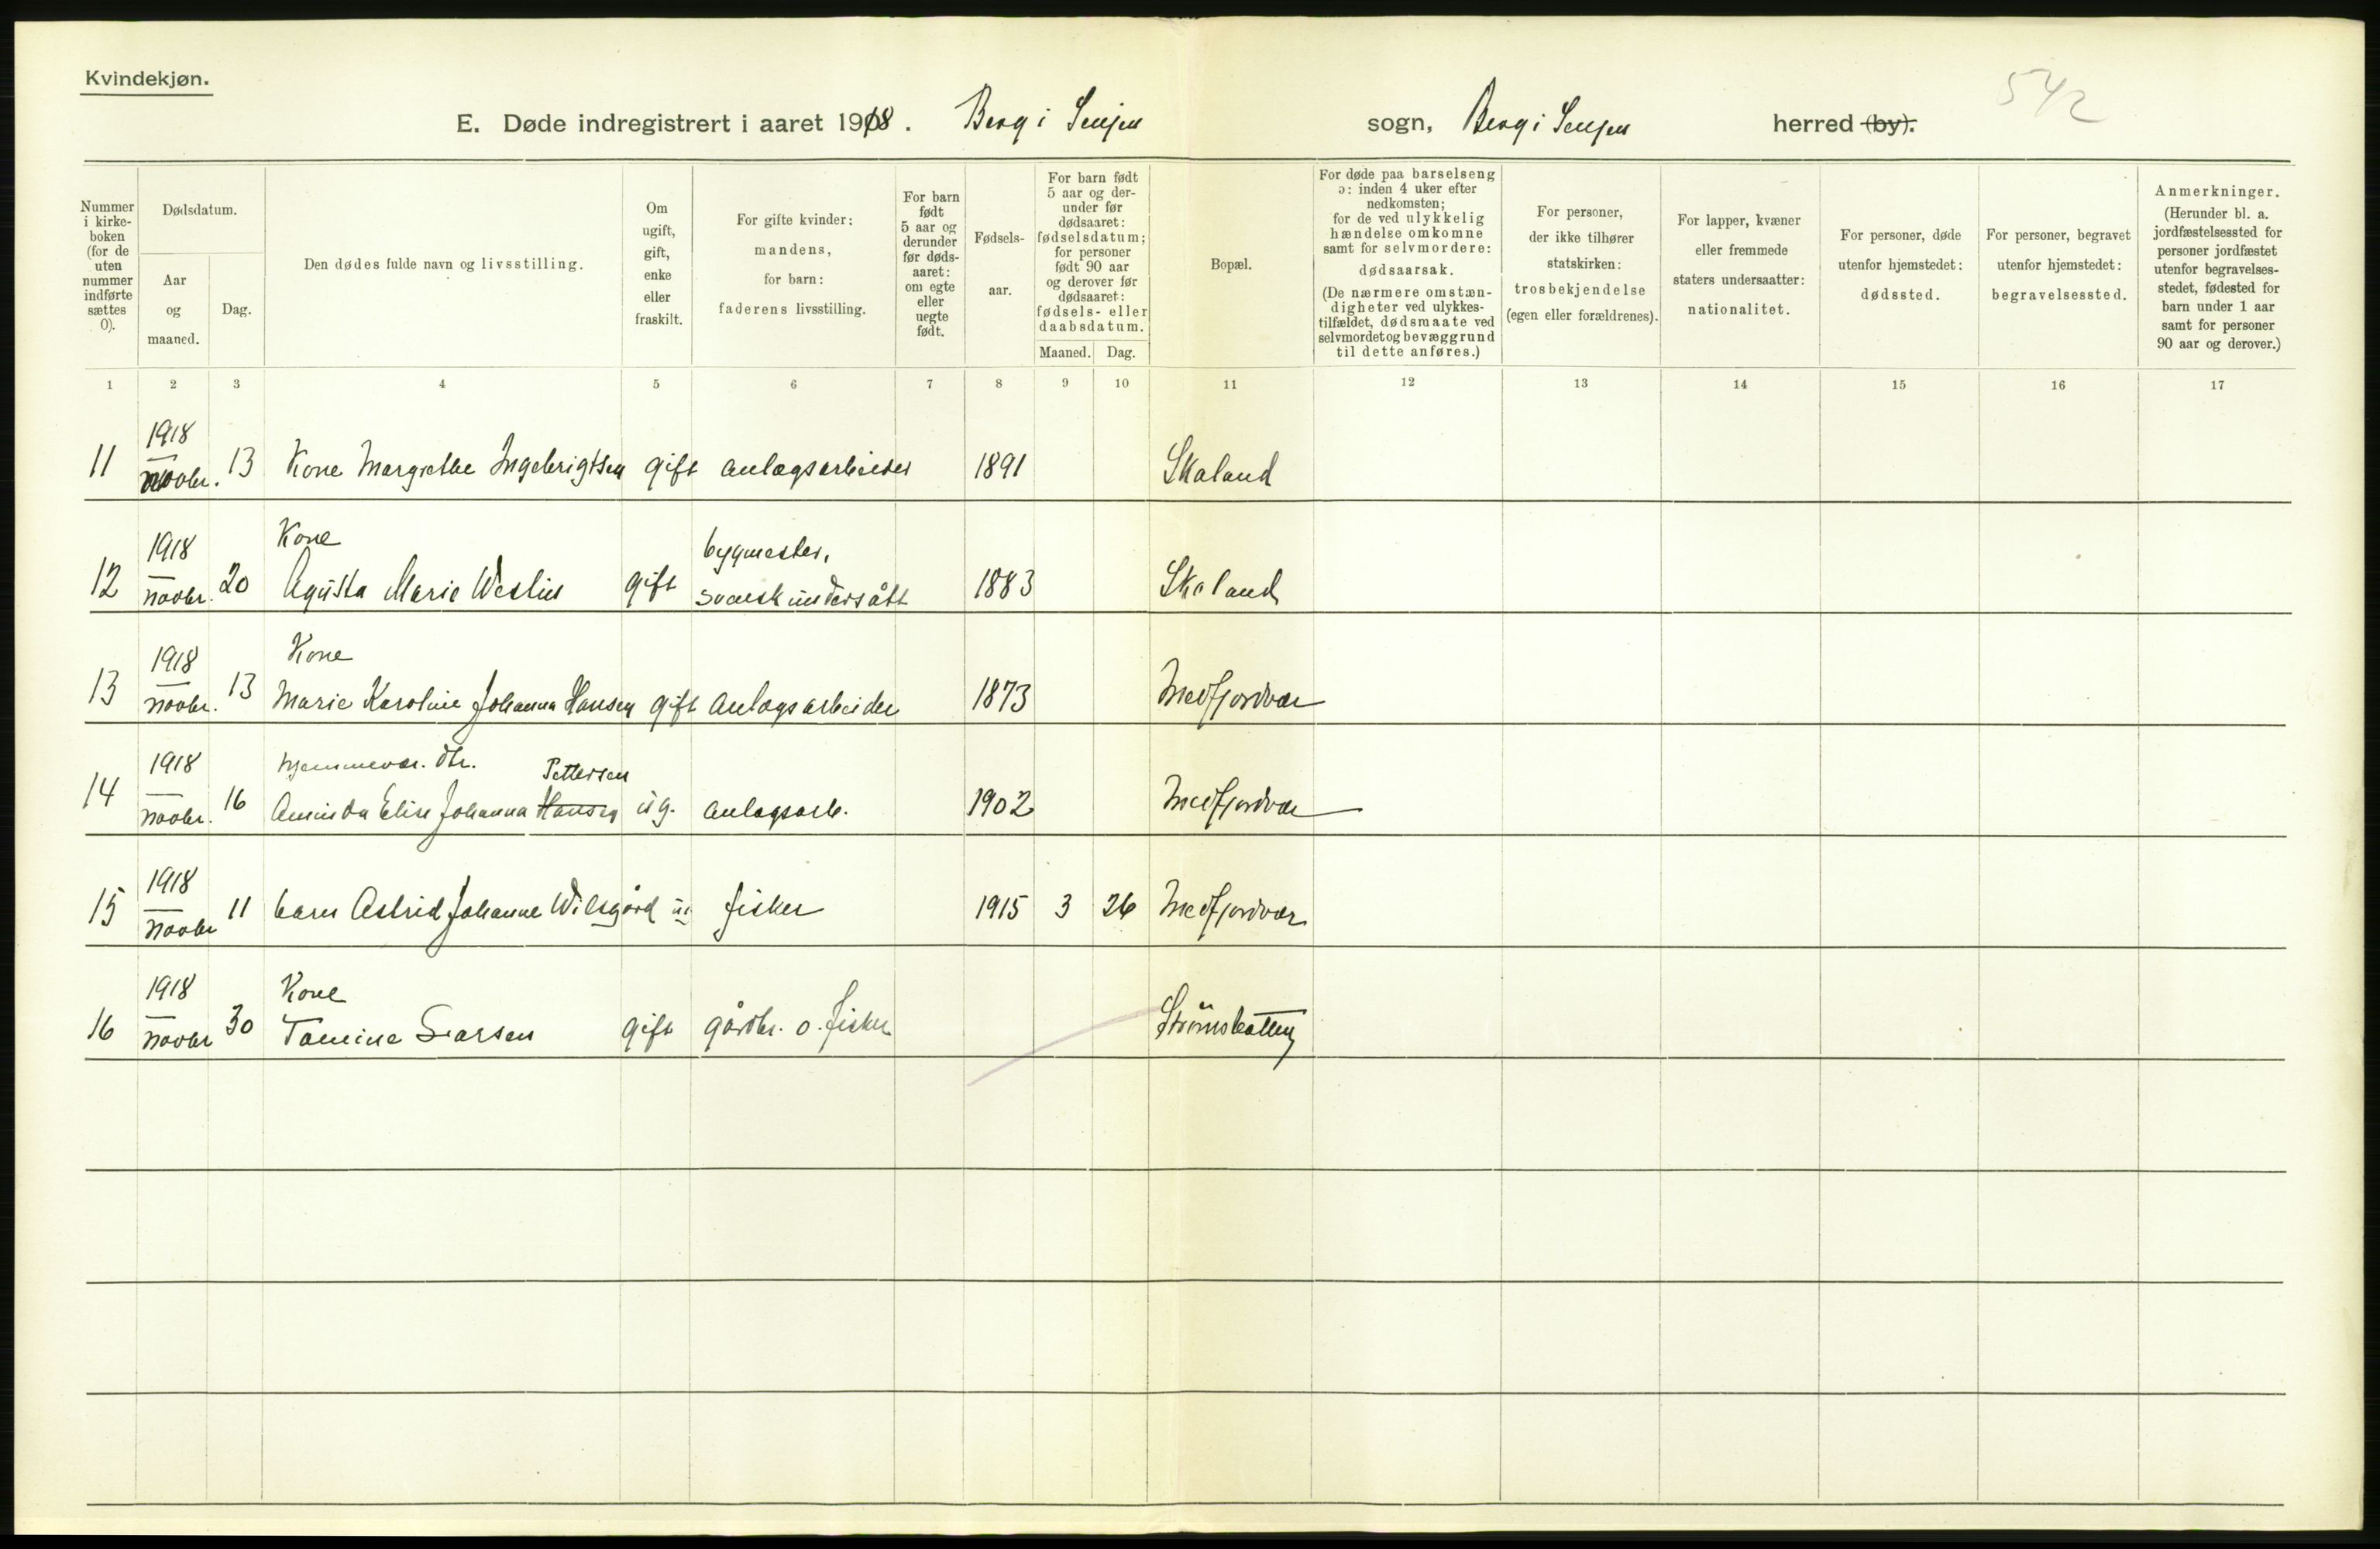 Kvindekjøn.
542
E. Døde indregistrert i aaret 1918. Berg i Senjen sogn, Berg i Senjen herred (by).
Nummer i kirkeboken (for de uten nummer indførte sættes 0).
Dødsdatum.
Aar og maaned.
Dag.
Den dødes fulde navn og livsstilling.
Om ugift, gift, enke eller fraskilt.
For gifte kvinder: mandens, for barn: faderens livsstilling.
For barn født 5 aar og derunder før dødsaaret: om egte eller uegte født.
Fødselsaar.
For barn født 5 aar og derunder før dødsaaret: fødselsdatum; for personer født 90 aar og derover før dødsaaret: fødsels- eller daabsdatum.
Maaned.
Dag.
Bopæl.
For døde paa barselseng ɔ: inden 4 uker efter nedkomsten; for de ved ulykkelig hændelse omkomne samt for selvmordere: dødsaarsak. (De nærmere omstændigheter ved ulykkestilfældet, dødsmaate ved selvmordet og bevæggrund til dette anføres.)
For personer, der ikke tilhører statskirken: trosbekjendelse (egen eller forældrenes).
For lapper, kvæner eller fremmede staters undersaatter: nationalitet.
For personer, døde utenfor hjemstedet: dødssted.
For personer, begravet utenfor hjemstedet: begravelsessted.
Anmerkninger. (Herunder bl. a. jordfæstelsessted for personer jordfæstet utenfor begravelsesstedet, fødested for barn under 1 aar samt for personer 90 aar og derover.)
1 2 3 4 5 6 7 8 9 10 11 12 13 14 15 16 17
1918
11 novbr. 13 Kone Margrethe Ingebrigtsen gift anlægsarbeider 1891 Skaland
1918 Kone bygmester,
12 novbr. 20 Agusta Marie Weslin gift svensk undersått 1883 Skaland
1918 Kone
13 novbr. 13 Marie Karoline Johanna Hansen gift anlægsarbeider 1873 Medfjordvær
1918 hjemmevær. dtr. Pettersen
14 novbr. 16 Aminda Elise Johanna Hansen ug. anlægsarb. 1902 Medfjordvær
1918
15 novbr 11 barn Astrid Johanne Wilsgård ug fisker 1915 3 26 Medfjordvær
1918 Kone
16 novbr 30 Tomine Larsen gift gårdbr. o. fisker Strömsbotten